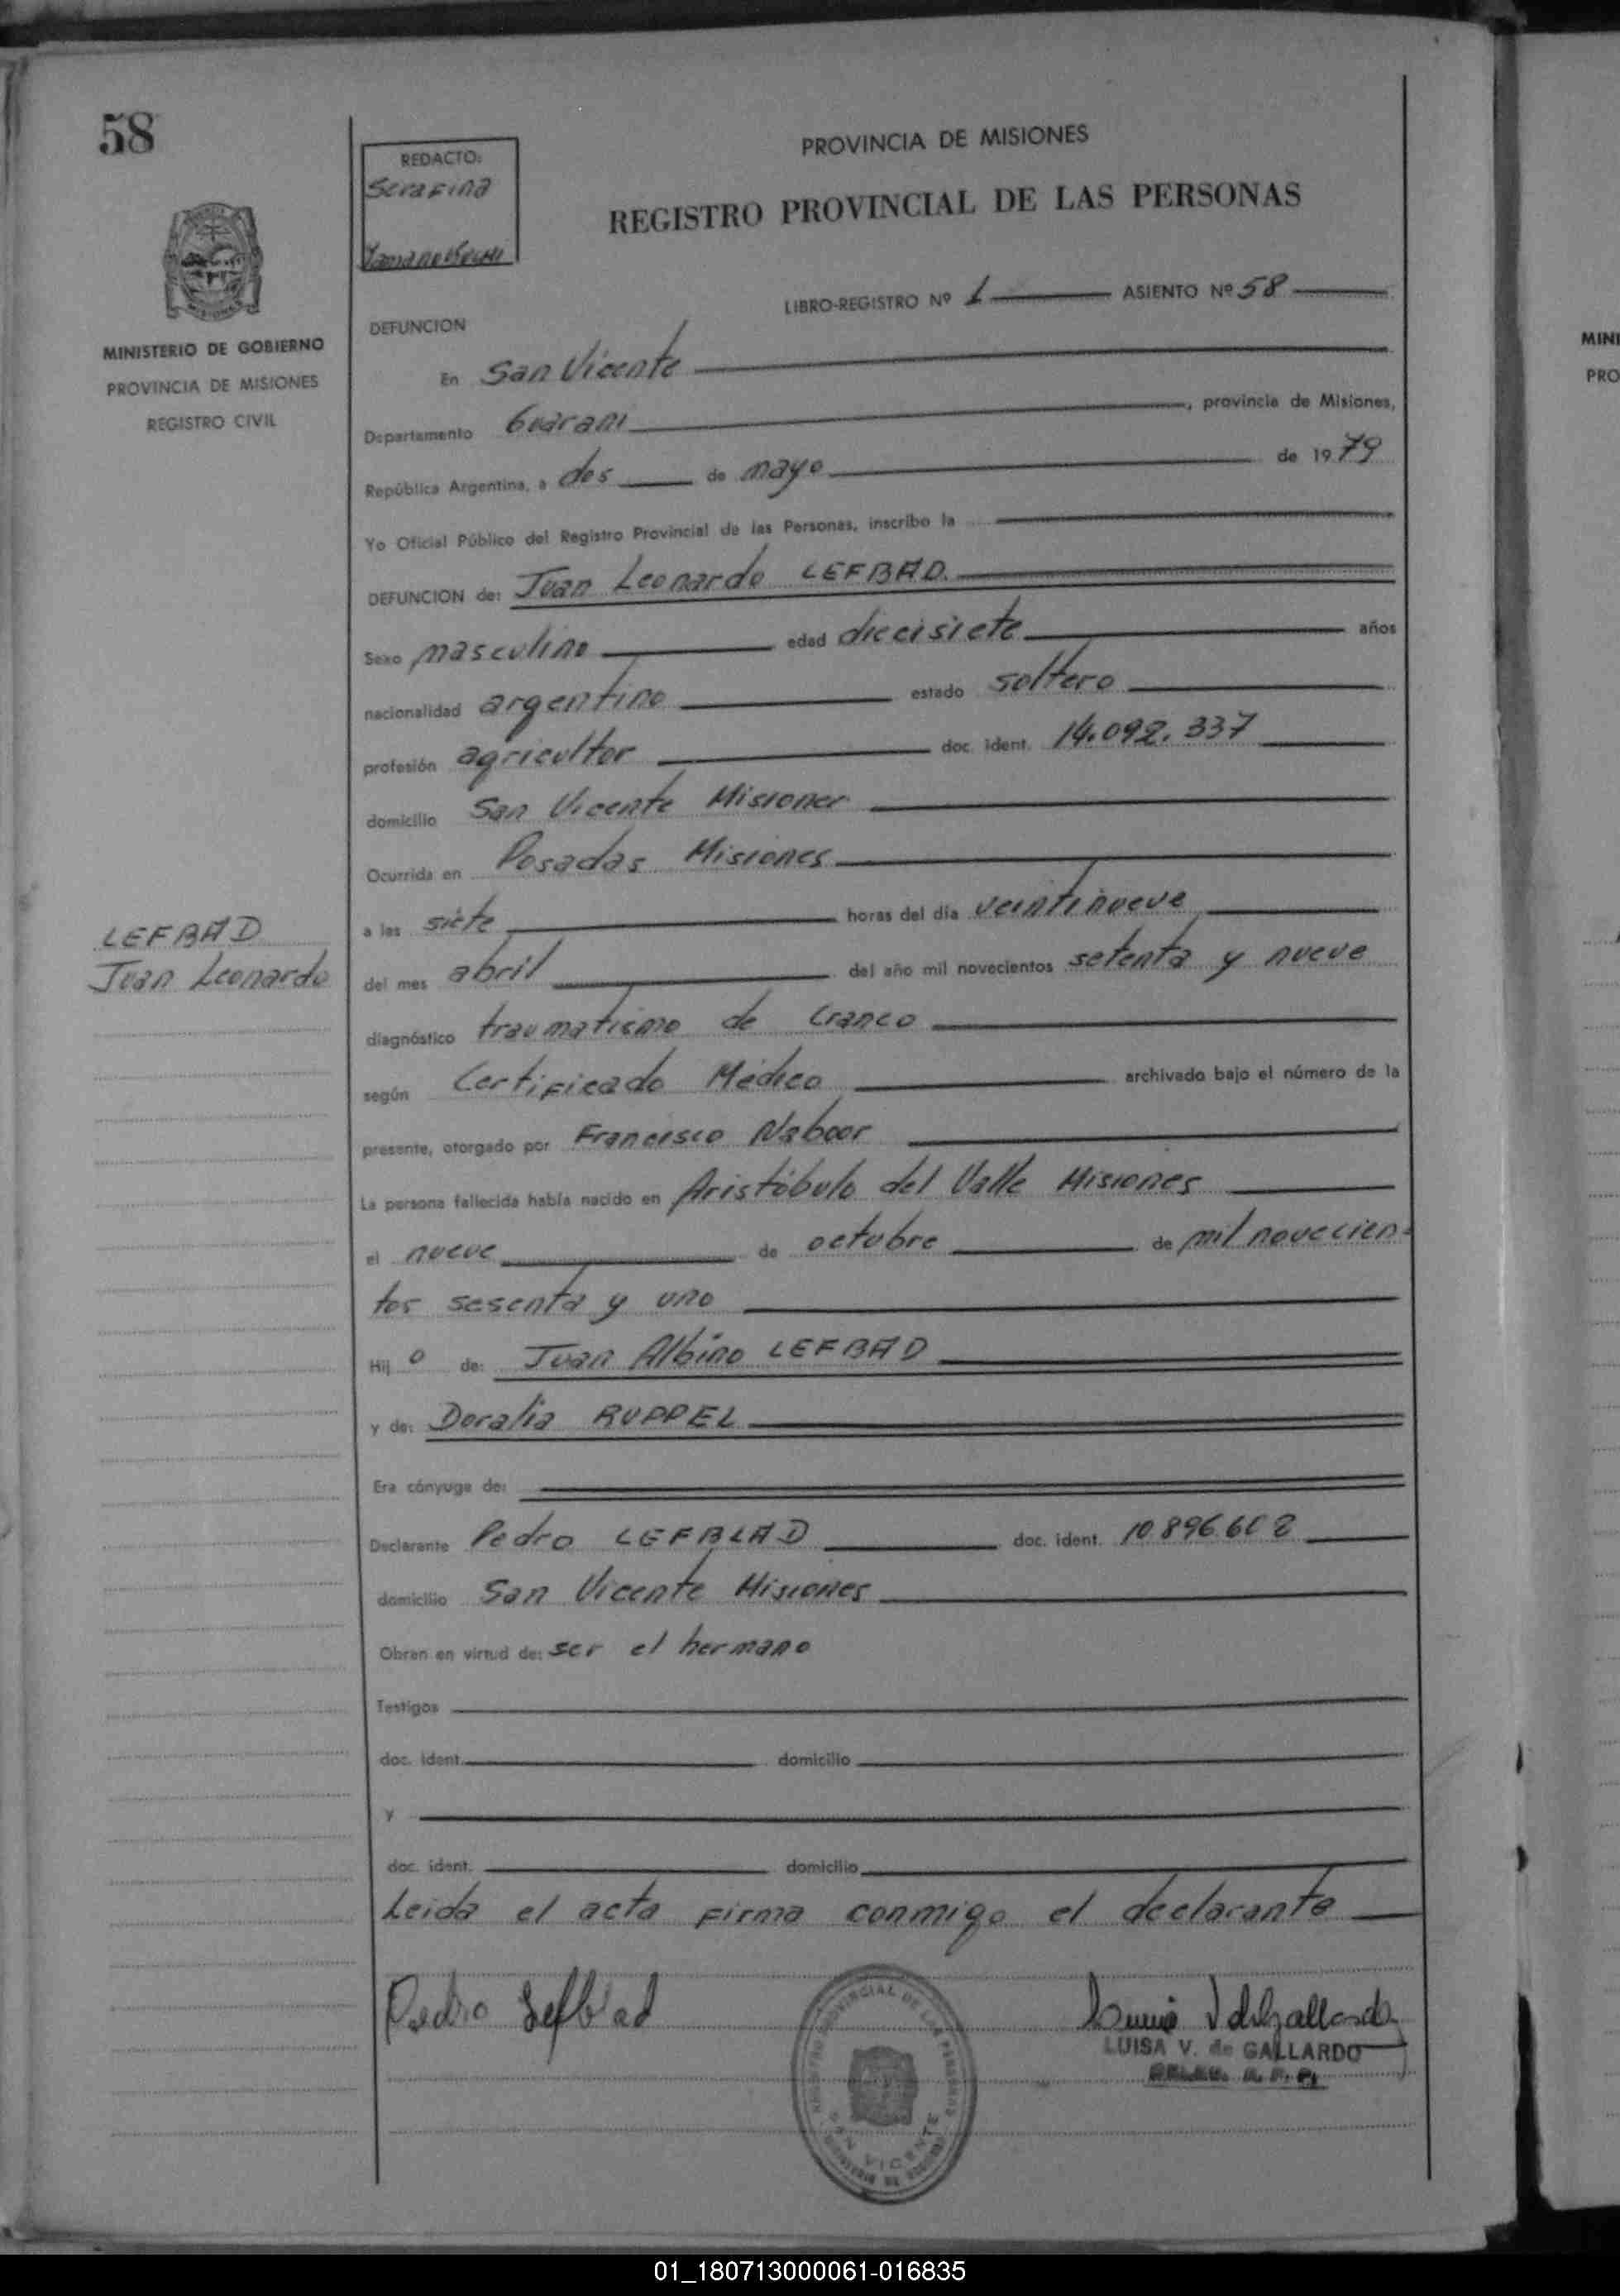 58
REDACTO:
Serafina
PROVINCIA DE MISIONES
REGISTRO PROVINCIAL DE LAS PERSONAS
LIBRO-REGISTRO Nº 1 ASIENTO Nº 58
MINISTERIO DE GOBIERNO
PROVINCIA DE MISIONES
REGISTRO CIVIL
DEFUNCION
En San Vicente
Departamento Guarani, provincia de Misiones,
República Argentina, a dos de mayo de 1979
Yo Oficial Público del Registro Provincial de las Personas, inscribo la
DEFUNCION de: Juan Leonardo LEFBAD
Sexo masculino edad diecisiete años
nacionalidad argentino estado soltero
profesión agricultor doc. ident. 14.092.337
domicilio San Vicente Misiones
Ocurrida en Posadas Misiones
a las siete horas del día veintinueve
del mes abril del año mil novecientos setenta y nueve
LEFBAD
Juan Leonardo
diagnóstico traumatismo de craneo
según Certificado Médico archivado bajo el número de la
presente, otorgado por Francisco Naboor
La persona fallecida había nacido en Aristóbulo del Valle Misiones
el nueve de octubre de mil novecien-
tos sesenta y uno
Hijo de: Juan Albino LEFBAD
y de: Doralia RUPPEL
Era cónyuge de:
Declarante Pedro LEFBLAD doc. ident. 10.896.602
domicilio San Vicente Misiones
Obran en virtud de: ser el hermano
Testigos
doc. ident. domicilio
y
doc. ident. domicilio
Leida el acta firma conmigo el declarante
Pedro Lefblad
LUISA V. de GALLARDO
REGISTRO PROVINCIAL DE LAS PERSONAS
SAN VICENTE
MINI
PRO
01_180713000061-016835